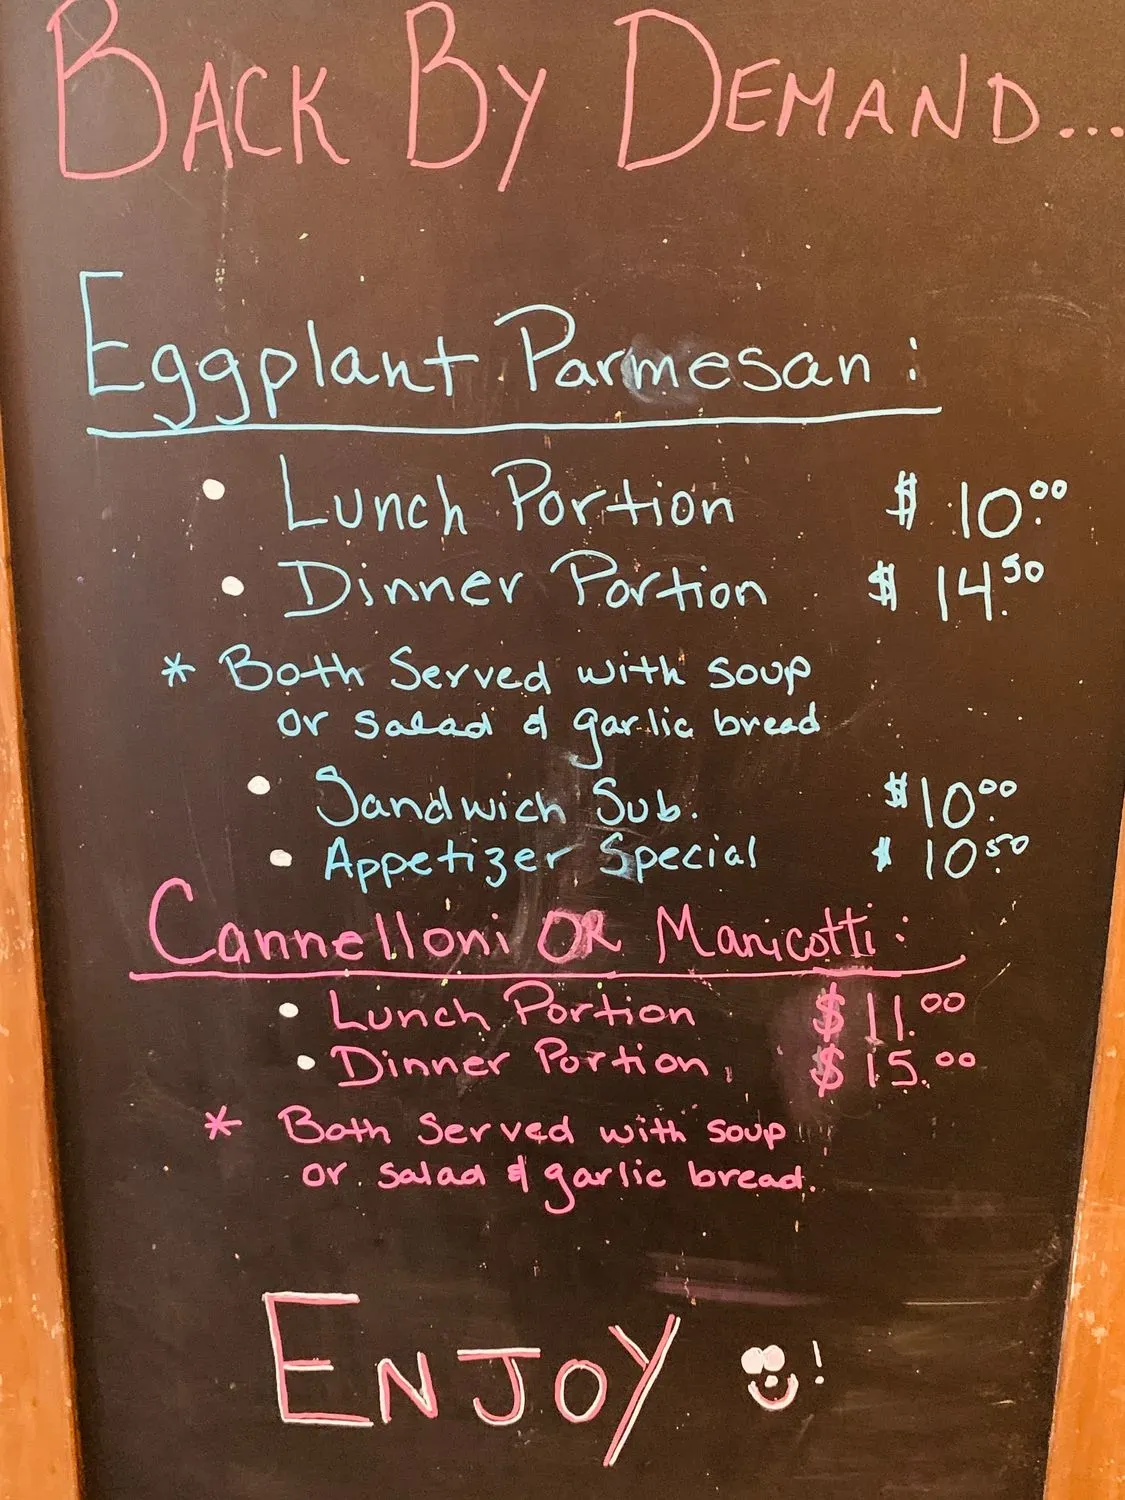 BACK BY DEMAND...
Eggplant Parmesan:
• Lunch Portion $10.00
• Dinner Portion $14.50
* Both Served with soup
or salad & garlic bread
• Sandwich Sub. $10.00
• Appetizer Special $10.50
Cannelloni OR Manicotti:
• Lunch Portion $11.00
• Dinner Portion $15.00
* Both Served with soup
or salad & garlic bread.
ENJOY !